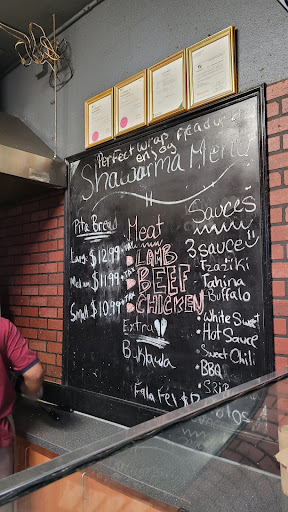 Perfect wrap ready
enjoy
Shawarma Menu
Pita Bread
Large $12.99 + TAX
Medium $11.99 + TAX
Small $10.99 + TAX
Meat
LAMB
BEEF
CHICKEN
Extra
Baklawa
Falafel
Sauces
3 sauce
Tzaziki
Tahina
Buffalo
• White Sweet
• Hot Sauce
Sweet Chili
• BBQ